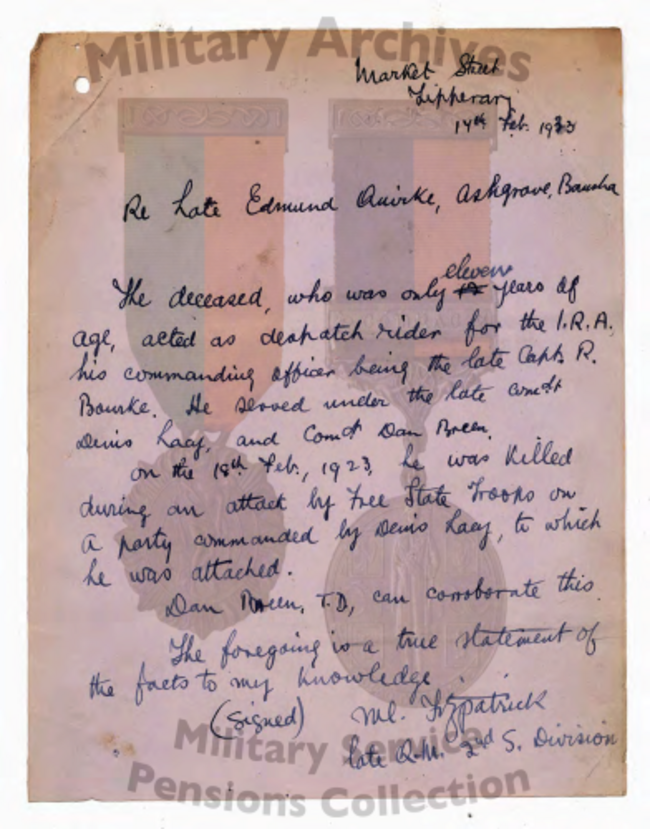 Military Archives
Market Street
Tipperary
14th Feb. 1933
Re Late Edmund Quirke, Ashgrove, Bansha
eleven
The deceased, who was only 12 years of
age, acted as despatch rider for the I.R.A.
his commanding officer being the late Capt. R.
Bourke. He served under the late Comdt
Denis Lacy, and Comdt Dan Breen.
On the 18th Feb., 1923, he was killed
during an attack by Free State Troops on
a party commanded by Denis Lacy, to which
he was attached.
Dan Breen, T.D., can corroborate this.
The foregoing is a true statement of
the facts to my knowledge.
(Signed) Ml. Fitzpatrick
late Q.M. 2nd S. Division
Military Service
Pensions Collection